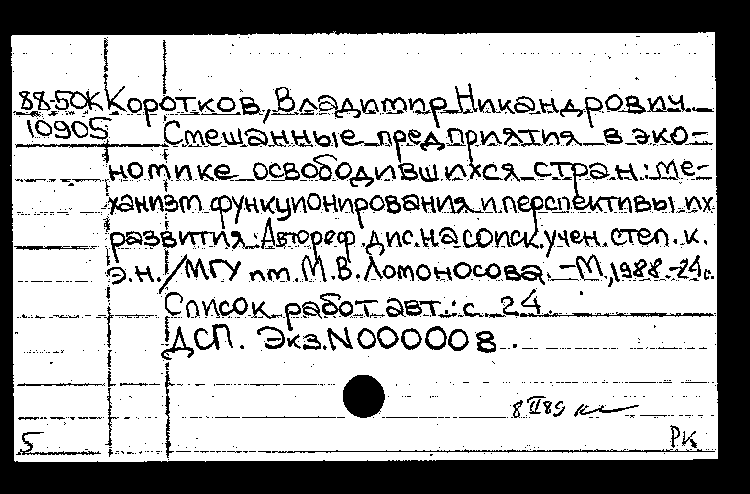 88-50К Коротков, Владимир Никандрович.
10905 Смешанные предприятия в эко-
номике освободившихся стран: ме-
ханизм функционирования и перспективы их
развития: Автореф. дис. на соиск. учен. степ. к.
э.н. / МГУ им. М.В. Ломоносова. – М., 1988. - 24 с.
Список работ авт.: с 24.
ДСП. Экз. N000008.
8 II 89
5 РК